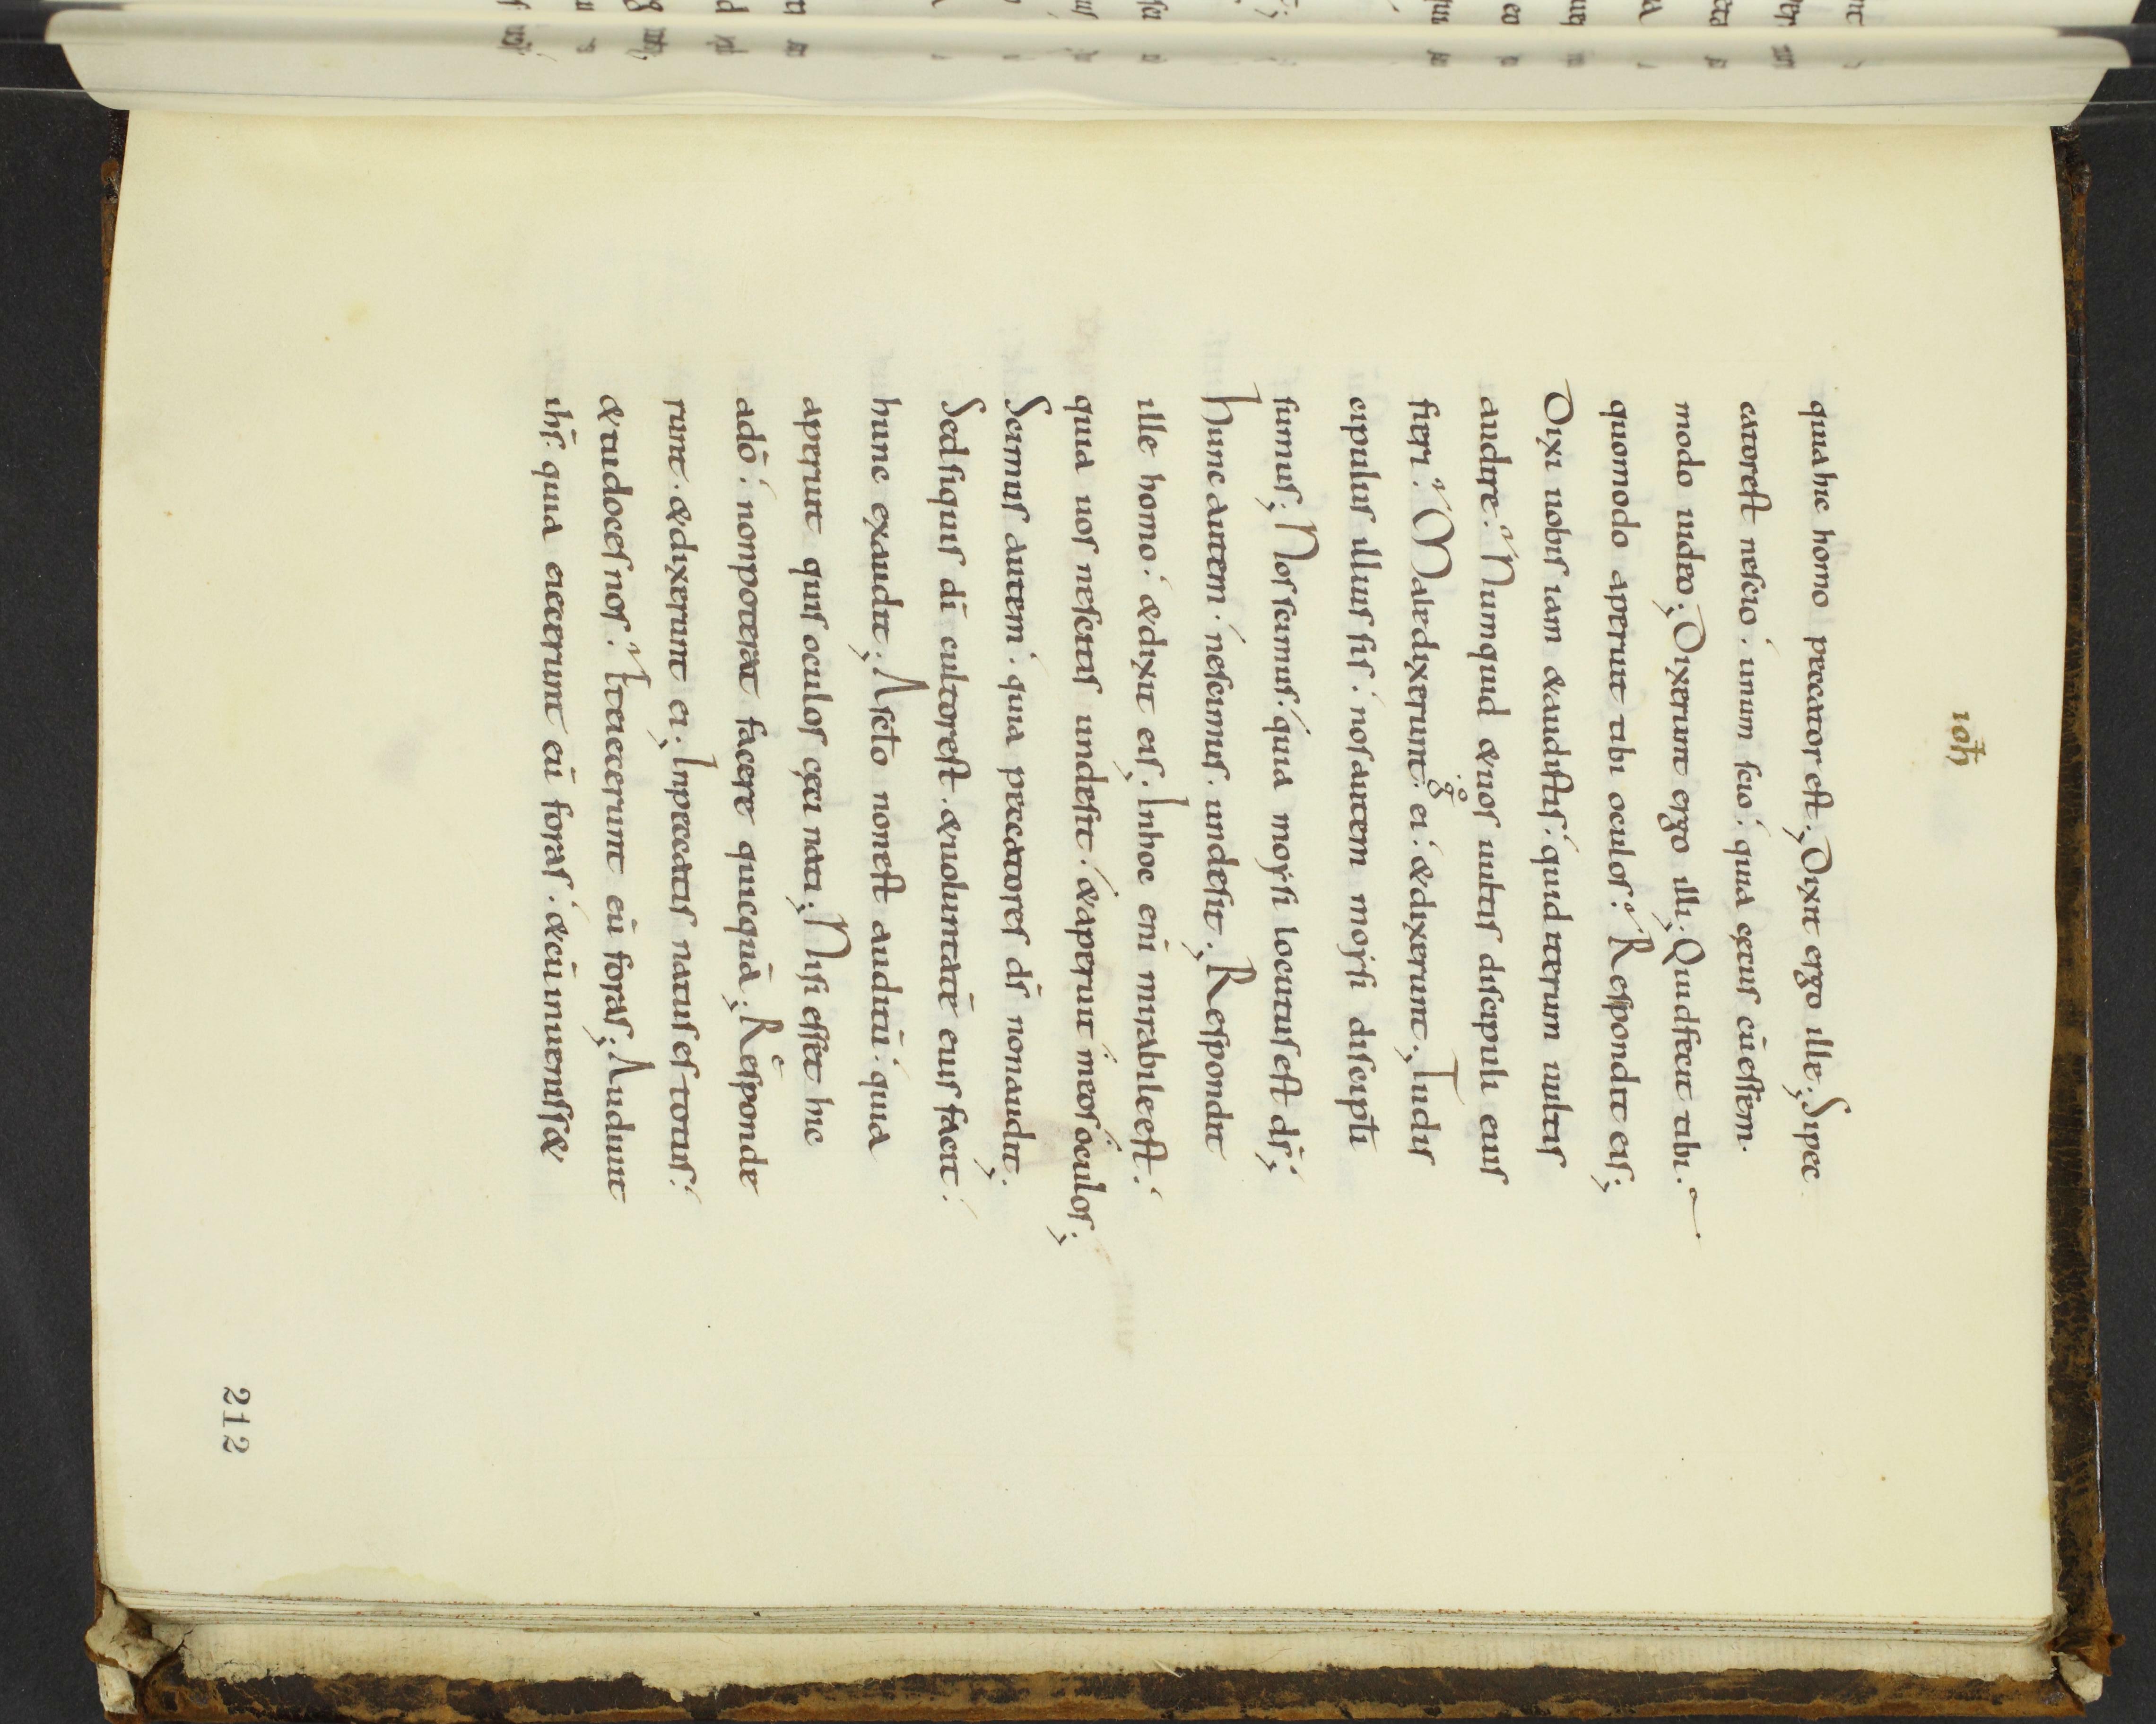 ioħ
quia hic homo peccator est; Dixit ergo ille; Si pec
cator est nescio. unum scio. quia cęcus cū essem.
modo uideo; Dixerunt ergo illi; Quid fecit tibi.
quomodo aperuit tibi oculos? Respondit eis;
Dixi uobis iam & audistis. quid iterum uultis
audire? Numquid & uos uultis discipuli eius
fieri? Maledixerunt g̊ ei. & dixerunt; Tu dis
cipulus illius sis. nos autem moysi discipłi
sumus; Nos scimus. quia moysi locutus est ds̄;
Hunc autem. nescimus. unde sit; Respondit
ille homo. & dixit eis; In hoc eni̅ mirabile est.
quia uos nescitis unde sit. & aperuit meos oculos;
Scimus autem. quia peccatores ds̄ non audit;
Sed si quis dī cultor est. & uoluntatē eius facit.
hunc exaudit; A sęcto non est auditū. quia
aperuit quis oculos cęci nati; Nisi esset hic
a dō. non poterat facere quicquā; Responde
runt. & dixerunt ei; In peccatis natus es totus.
& tu doces nos? Et eiecerunt eū foras; Audiuit
ihs̄. quia eiecerunt eū foras. & cū inueniss&
212